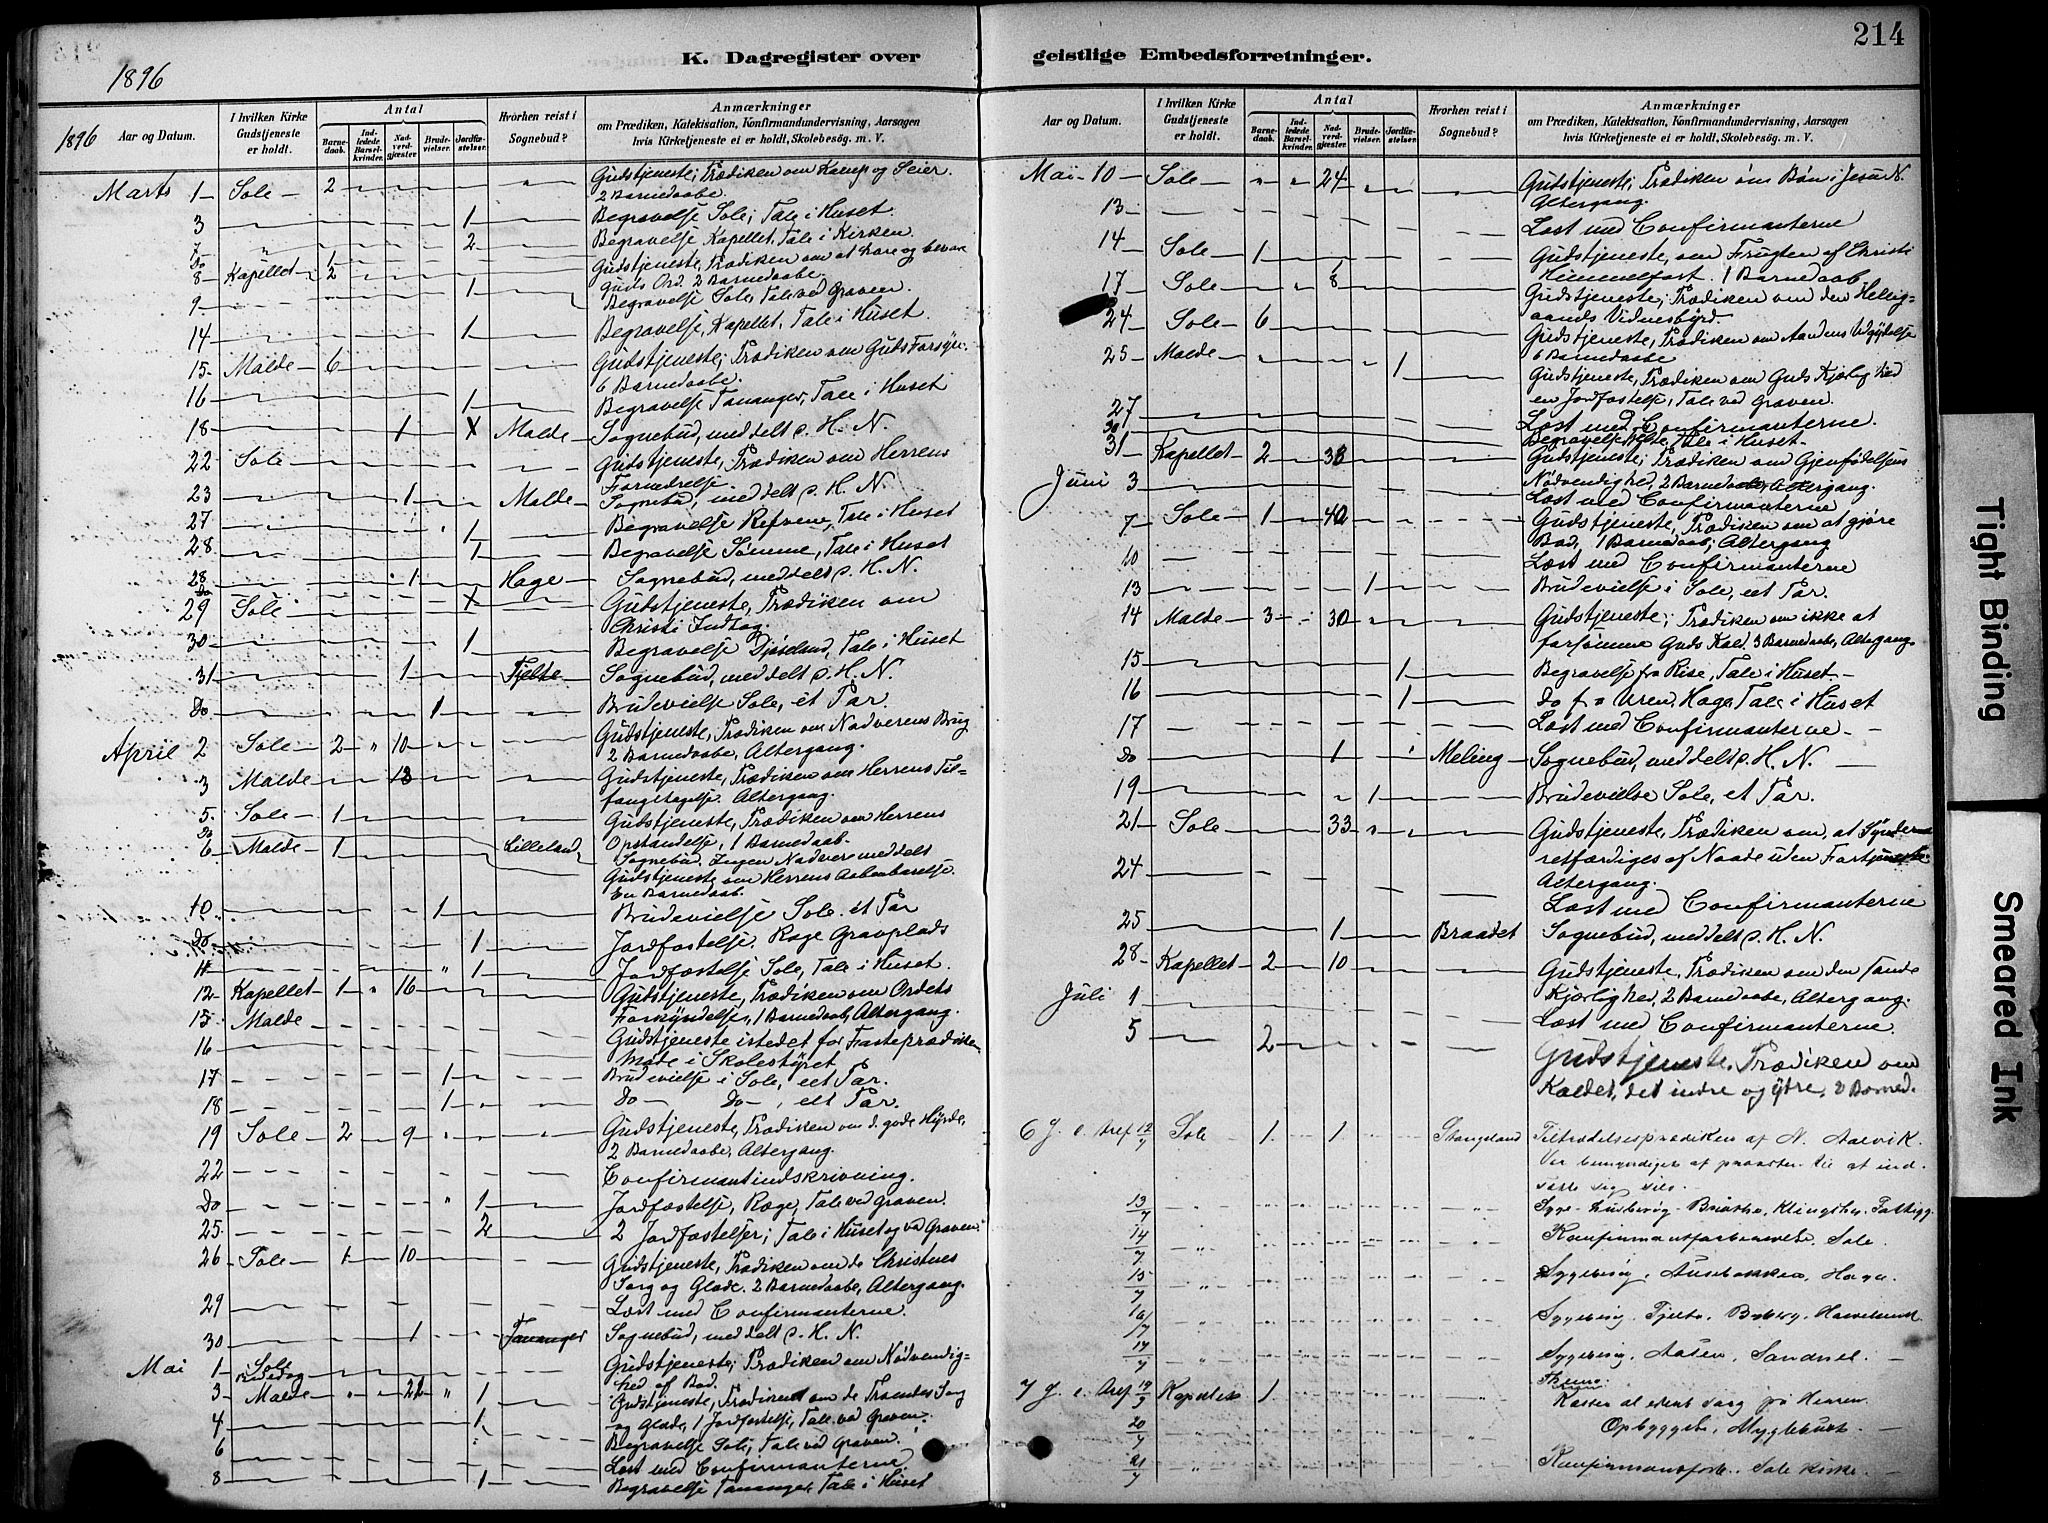 K. Dagregister over
geistlige Embedsforretninger.
214
1896
1896
Aar og Datum.
I hvilken Kirke Gudstjeneste er holdt.
Antal
Barnedaab.
Indledede Barselkvinder.
Nadverdgjæster
Brudevielser.
Jordfæstelser.
Hvorhen reist i Sognebud?
Anmærkninger
om Prædiken, Katekisation, Konfirmandundervisning, Aarsagen
hvis Kirketjeneste ei er holdt, Skolebesøg. m. V.
Marts 1 - Sole - 2 Gudstjeneste; Prædiken om Kamp og Seier
2 Barnedaabe.
3 1 Begravelse Sole; Tale i Huset.
7 2 Begravelse Kapellet. Tale i Kirken.
Do 1
8 Kapellet 2 Gudstjeneste, Prædiken om at høre og bevare
Guds Ord. 2 Barnedaabe.
9 1 Begravelse Sole, Tale ved Graven.
14 1 Begravelse, Kapellet. Tale i Huset.
15 - Malde - 6 Gudstjeneste; Prædiken om Guds Forsyn.
6 Barnedaabe.
16 1 Begravelse Tananger, Tale i Huset
18 1 X Malde - Sognebud, meddelt s. H. N.
22 Sole Gudstjeneste, Prædiken om Herrens
Fornedrelse.
23 1 Malde - Sognebud, meddelt s. H. N.
27 1 Begravelse Refvene, Tale i Huset
28 1 Begravelse Sømme, Tale i Huset
28 1 Hage - Sognebud, meddelt s. H. N.
Do X
29 Sole Gudstjeneste, Prædiken om
Christi Indtog.
30 1 Begravelse Djøseland, Tale i Huset
31 1 Tjelte Sognebud, meddelt s. H. N.
Do 1 Brudevielse Sole, et Par.
April 2 Sole - 2 10 Gudstjeneste, Prædiken om Nadverens Brug
2 Barnedaabe, Altergang.
3 Malde 18 Gudstjeneste, Prædiken om Herrens Til-
fangetagelse. Altergang.
5. Sole - 1 Gudstjeneste, Prædiken om Herrens
Opstandelse, 1 Barnedaab.
Do Lilleland Sognebud. Ingen Nadvere meddelt
6 Malde - 1 Gudstjeneste om Herrens Aabenbarelse.
En Barnedaab.
10 1 Brudevielse Sole. et Par
Do 1 Jordfæstelse. Rage Gravplads
11 1 Jordfæstelse Sole, Tale i Huset.
12 - Kapellet - 1 16 Gudstjeneste, Prædiken om Ordets
Forkyndelse, 1 Barnedaab, Altergang.
15 Malde Gudstjeneste istedet for Fasteprædiken
16 Møde i Skolestyret
17 1 Brudevielse i Sole, eet Par.
18 1 Do - Do -, eet Par.
19 Sole - 2 9 Gudstjeneste, Prædiken om d. gode Hyrde,
2 Barnedaabe, Altergang.
22 Confirmantindskrivning.
Do 1 Jordfæstelse, Rage, Tale ved Graven.
25. 2 2 Jordfæstelser; Tale i Huset og ved Graven.
26 - Sole - 1 10 Gudstjeneste, Prædiken om de Christnes
Sorg og Glæde. 2 Barnedaabe, Altergang.
29 Læst med Confirmanterne.
30 1 Tananger Sognebud, meddelt s. H. N.
Mai 1 - Sole Bededag Gudstjeneste; Prædiken om Nødvendig-
hed af Bod.
3 - Malde 21 1 Gudstjeneste, Prædiken om de Troendes Sorg
og Glæde, 1 Jordfæstelse, Tale ved Graven.
4 1 Begravelse Sole, Tale ved Graven.
6 Læst med Confirmanterne.
8 1 Begravelse Tananger, Tale i Huset
Aar og Datum.
I hvilken Kirke Gudstjeneste er holdt.
Antal
Barnedaab.
Indledede Barselkvinder.
Nadverdgjæster
Brudevielser.
Jordfæstelser.
Hvorhen reist i Sognebud?
Anmærkninger
om Prædiken, Katekisation, Konfirmandundervisning, Aarsagen
hvis Kirketjeneste ei er holdt, Skolebesøg. m. V.
Mai - 10 - Sole 24 Gudstjeneste; Prædiken om Bøn i Jesu N.
Altergang.
13 Læst med Confirmanterne
14 Sole 1 Gudstjeneste, om Frugten af Christi
Himmelfart. 1 Barnedaab
17 Sole 8 Gudstjeneste; Prædiken om den Hellig-
aands Vidnesbyrd.
24 Sole 6 Gudstjeneste, Prædiken om Aandens Udgydelse
6 Barnedaabe
25 Malde 1 Gudstjeneste, Prædiken om Guds Kjærlighed
en Jordfæstelse, Tale ved Graven.
27 Læst med Confirmanterne.
30 Begravelse Tjelte, Tale i Huset.
31 Kapellet 2 38 Gudstjeneste; Prædiken om Gjenfødelsens
Nødvendighed, 2 Barnedaabe, Altergang.
Juni 3 Læst med Confirmanterne
7 Sole - 1 40 Gudstjeneste, Prædiken om at gjøre
Bod, 1 Barnedaab; Altergang
10 Læst med Confirmanterne
13 1 Brudevielse i Sole, eet Par.
14 Malde - 3 30 Gudstjeneste; Prædiken om ikke at
forsømme Guds Kald. 3 Barnedaabe, Altergang.
15 1 Begravelse fra Rise, Tale i Huset.
16 1 Do fra Uren, Hage, Tale i Huset
17 Læst med Confirmanterne
Do 1 Meling - Sognebud, meddelt s. H. N.
19 1 Brudevielse Sole, et Par.
21 Sole 33 Gudstjeneste, Prædiken om, at Syndere
retfærdiges af Naade uden Fortjeneste.
Altergang.
24 Læst med Confirmanterne
25 1 Braadet Sognebud, meddelt s. H. N.
28 Kapellet 2 10 Gudstjeneste, Prædiken om den
Kjærlighed, 2 Barnedaabe, Altergang.
Juli 1 Læst med Confirmanterne.
5 2 Gudstjeneste. Prædiken om
Kaldet, det indre og ydre, 2 Barned.
6 S. e. Tref 12/7 Sole 1. 1 Stangeland Tiltrædelsesprædiken af N. Aalvik.
Var bemyndiget af provsten til at ind-
sætte sig selv.
13/7
14/7 Konfirmantforberedelse. Sole.
15/7 Sygebesøg, Hage.
16/7 Sygebesøg. Tjelte.
17/7 Sygebesøg. Aasen. Sandnes.
7 S. e. Tref 19/7 Kapellet 1 Thema:
Kaster al eders sorg på Herren.
20/7 Opbyggelse, Myglebust.
21/7 Konfirmantforb. Sole kirke.
Tight Binding
Smeared Ink